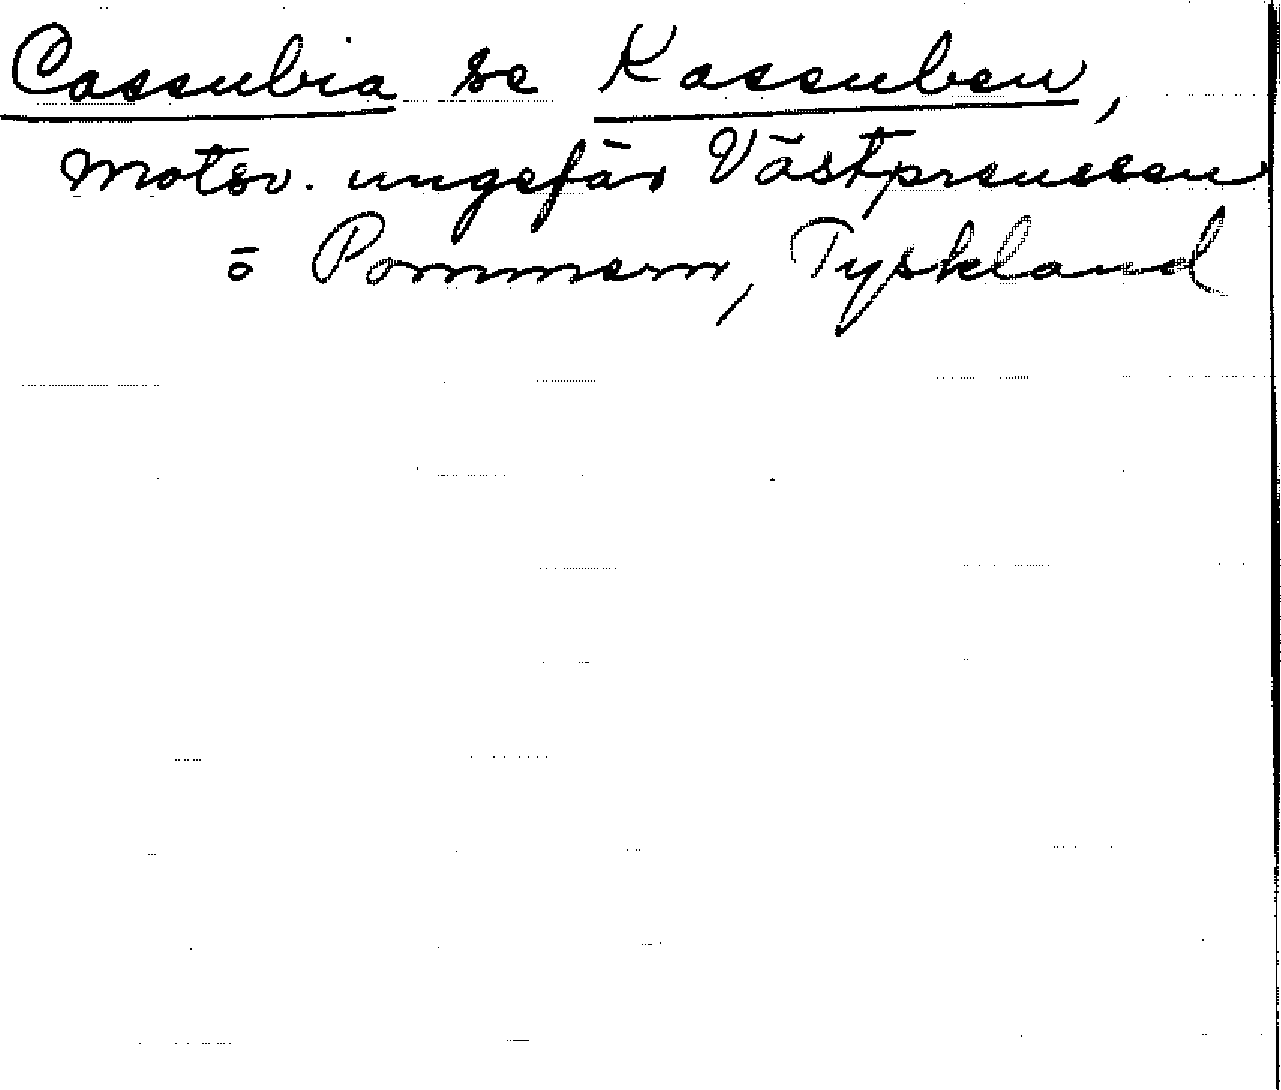 Cassubia se Kassuben,
motsv. ungefär Västpreussen
o Pommern, Tyskland